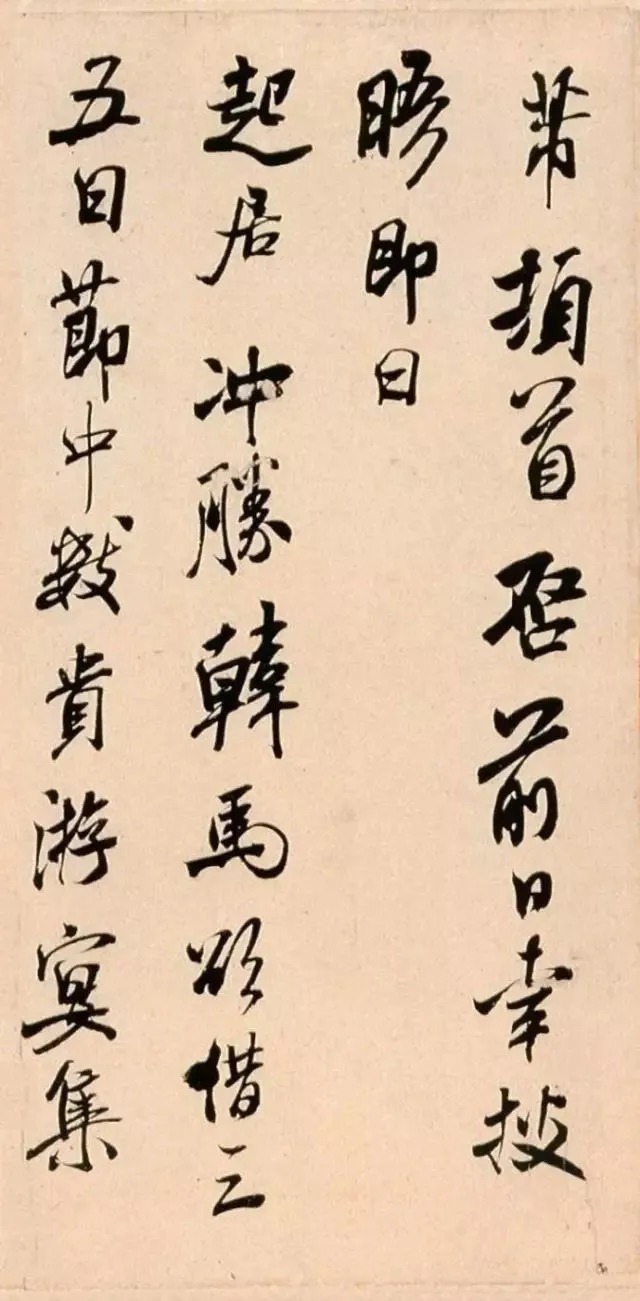 芾頓首启前日幸披
晤即日
起居冲勝韓馬欲借三
五日節中數貴游宴集